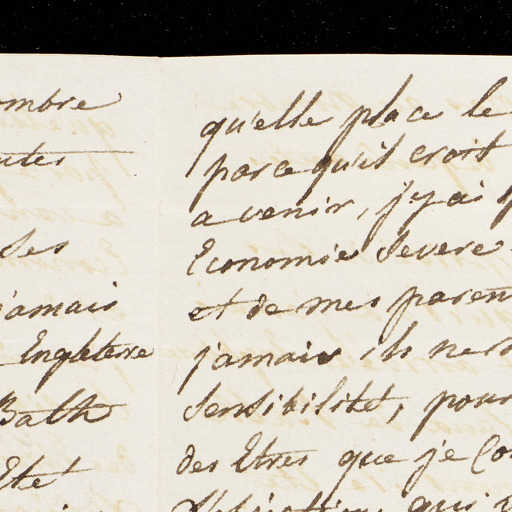 ombre
utes
ses
jamais
Engleterre
Bath
Eté
qu'elle place le
parce qu'il croit
avenir, j'y ai
Economie Severe
et de mes paren
jamais ils ne
Sensibilité, pour
des Etres que je Con
qui